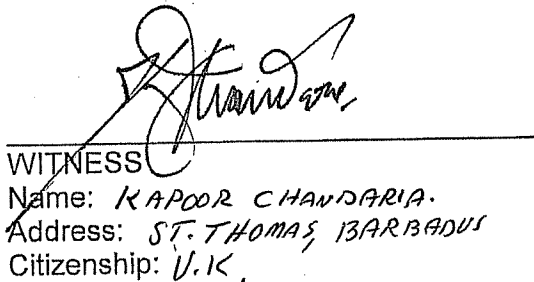 WITNESS
Name: KAPOOR CHANDARIA.
Address: ST. THOMAS, BARBADUS
Citizenship: U.K.